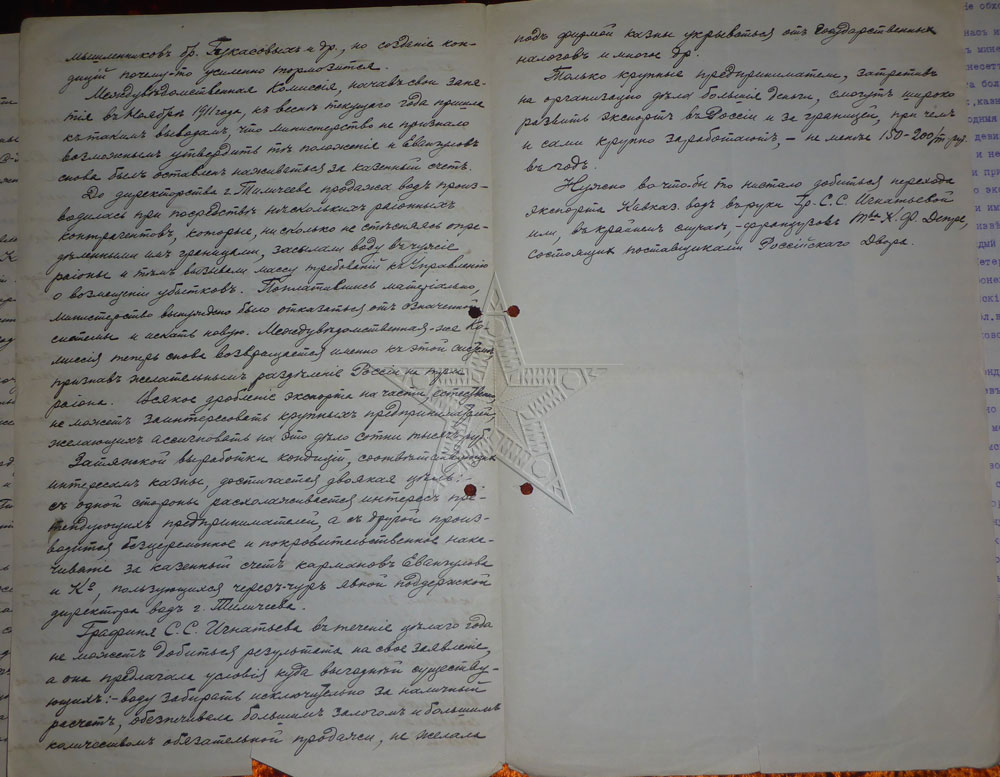 мышленниковъ бр. Гукасовыхъ и др., но созданіе кон-
дицій почему-то усиленно тормозится.
Междувѣдомственная Комиссія, начавъ свои заня-
тія въ Ноябрѣ 1911 года, на весну текущаго года пришла
къ такимъ выводамъ, что министерство не признало
возможнымъ утвердить то положеніе и Евангуловъ
снова былъ оставленъ наживаться за казенный счетъ.
До директорства г. Тиличеева продажа водъ произ-
водилась при посредствѣ нѣсколькихъ районныхъ
контрагентовъ, которые, нисколько не стѣсняясь опре-
дѣленными имъ границами, засылали воду въ чужіе
районы и тѣмъ вызывали массу требованій къ Управленію
о возмѣщеніи убытковъ. Поплатившись матеріально,
министерство вынуждено было отказаться отъ означенной
системы и искать новую. Междувѣдомственная-же Ко-
миссія теперь снова возвращается именно къ этой системѣ
признавъ желательнымъ раздѣленіе Россіи на три
района. Всякое дробленіе экспорта на части, естественно,
не можетъ заинтересовать крупныхъ предпринимателей,
желающихъ ассигновать на это дѣло сотни тысячъ руб.
Затяжкой выработки кондицій, соотвѣтствующихъ
интересамъ казны, достигается двоякая цѣль:-
съ одной стороны расхолаживается интересъ пре-
тендующихъ предпринимателей, а съ другой произ-
водится безцеремонное и покровительственное нака-
чиваніе за казенный счетъ кармановъ Евангулова
и Ко, пользующихся черезъ-чуръ явной поддержкой
директора водъ г. Тиличеева.
Графиня С.С. Игнатьева въ теченіе цѣлаго года
не можетъ добиться результата на свое заявленіе,
а она предлагала условія куда выгоднѣй существу-
ющихъ:- воду забирать исключительно за наличный
расчетъ, обезпечивала большимъ залогомъ и большимъ
количествомъ обязательной продажи, не желала
подъ фирмой казны укрываться отъ Государственныхъ
налоговъ и многое др.
Только крупные предприниматели, затративъ
на организацію дѣла большія деньги, смогутъ широко
развить экспортъ въ Россіи и за границей, при чемъ
и сами крупно заработаютъ, - не менѣе 150-200/т руб.
въ годъ.
Нужно во что-бы то нистало добиться перехода
экспорта Кавказ. водъ въ руки Гр. С.С. Игнатьевой
или, въ крайнемъ случаѣ, - французовъ Т-ва К. Ф. Депре,
состоящихъ поставщиками Россійскаго Двора.